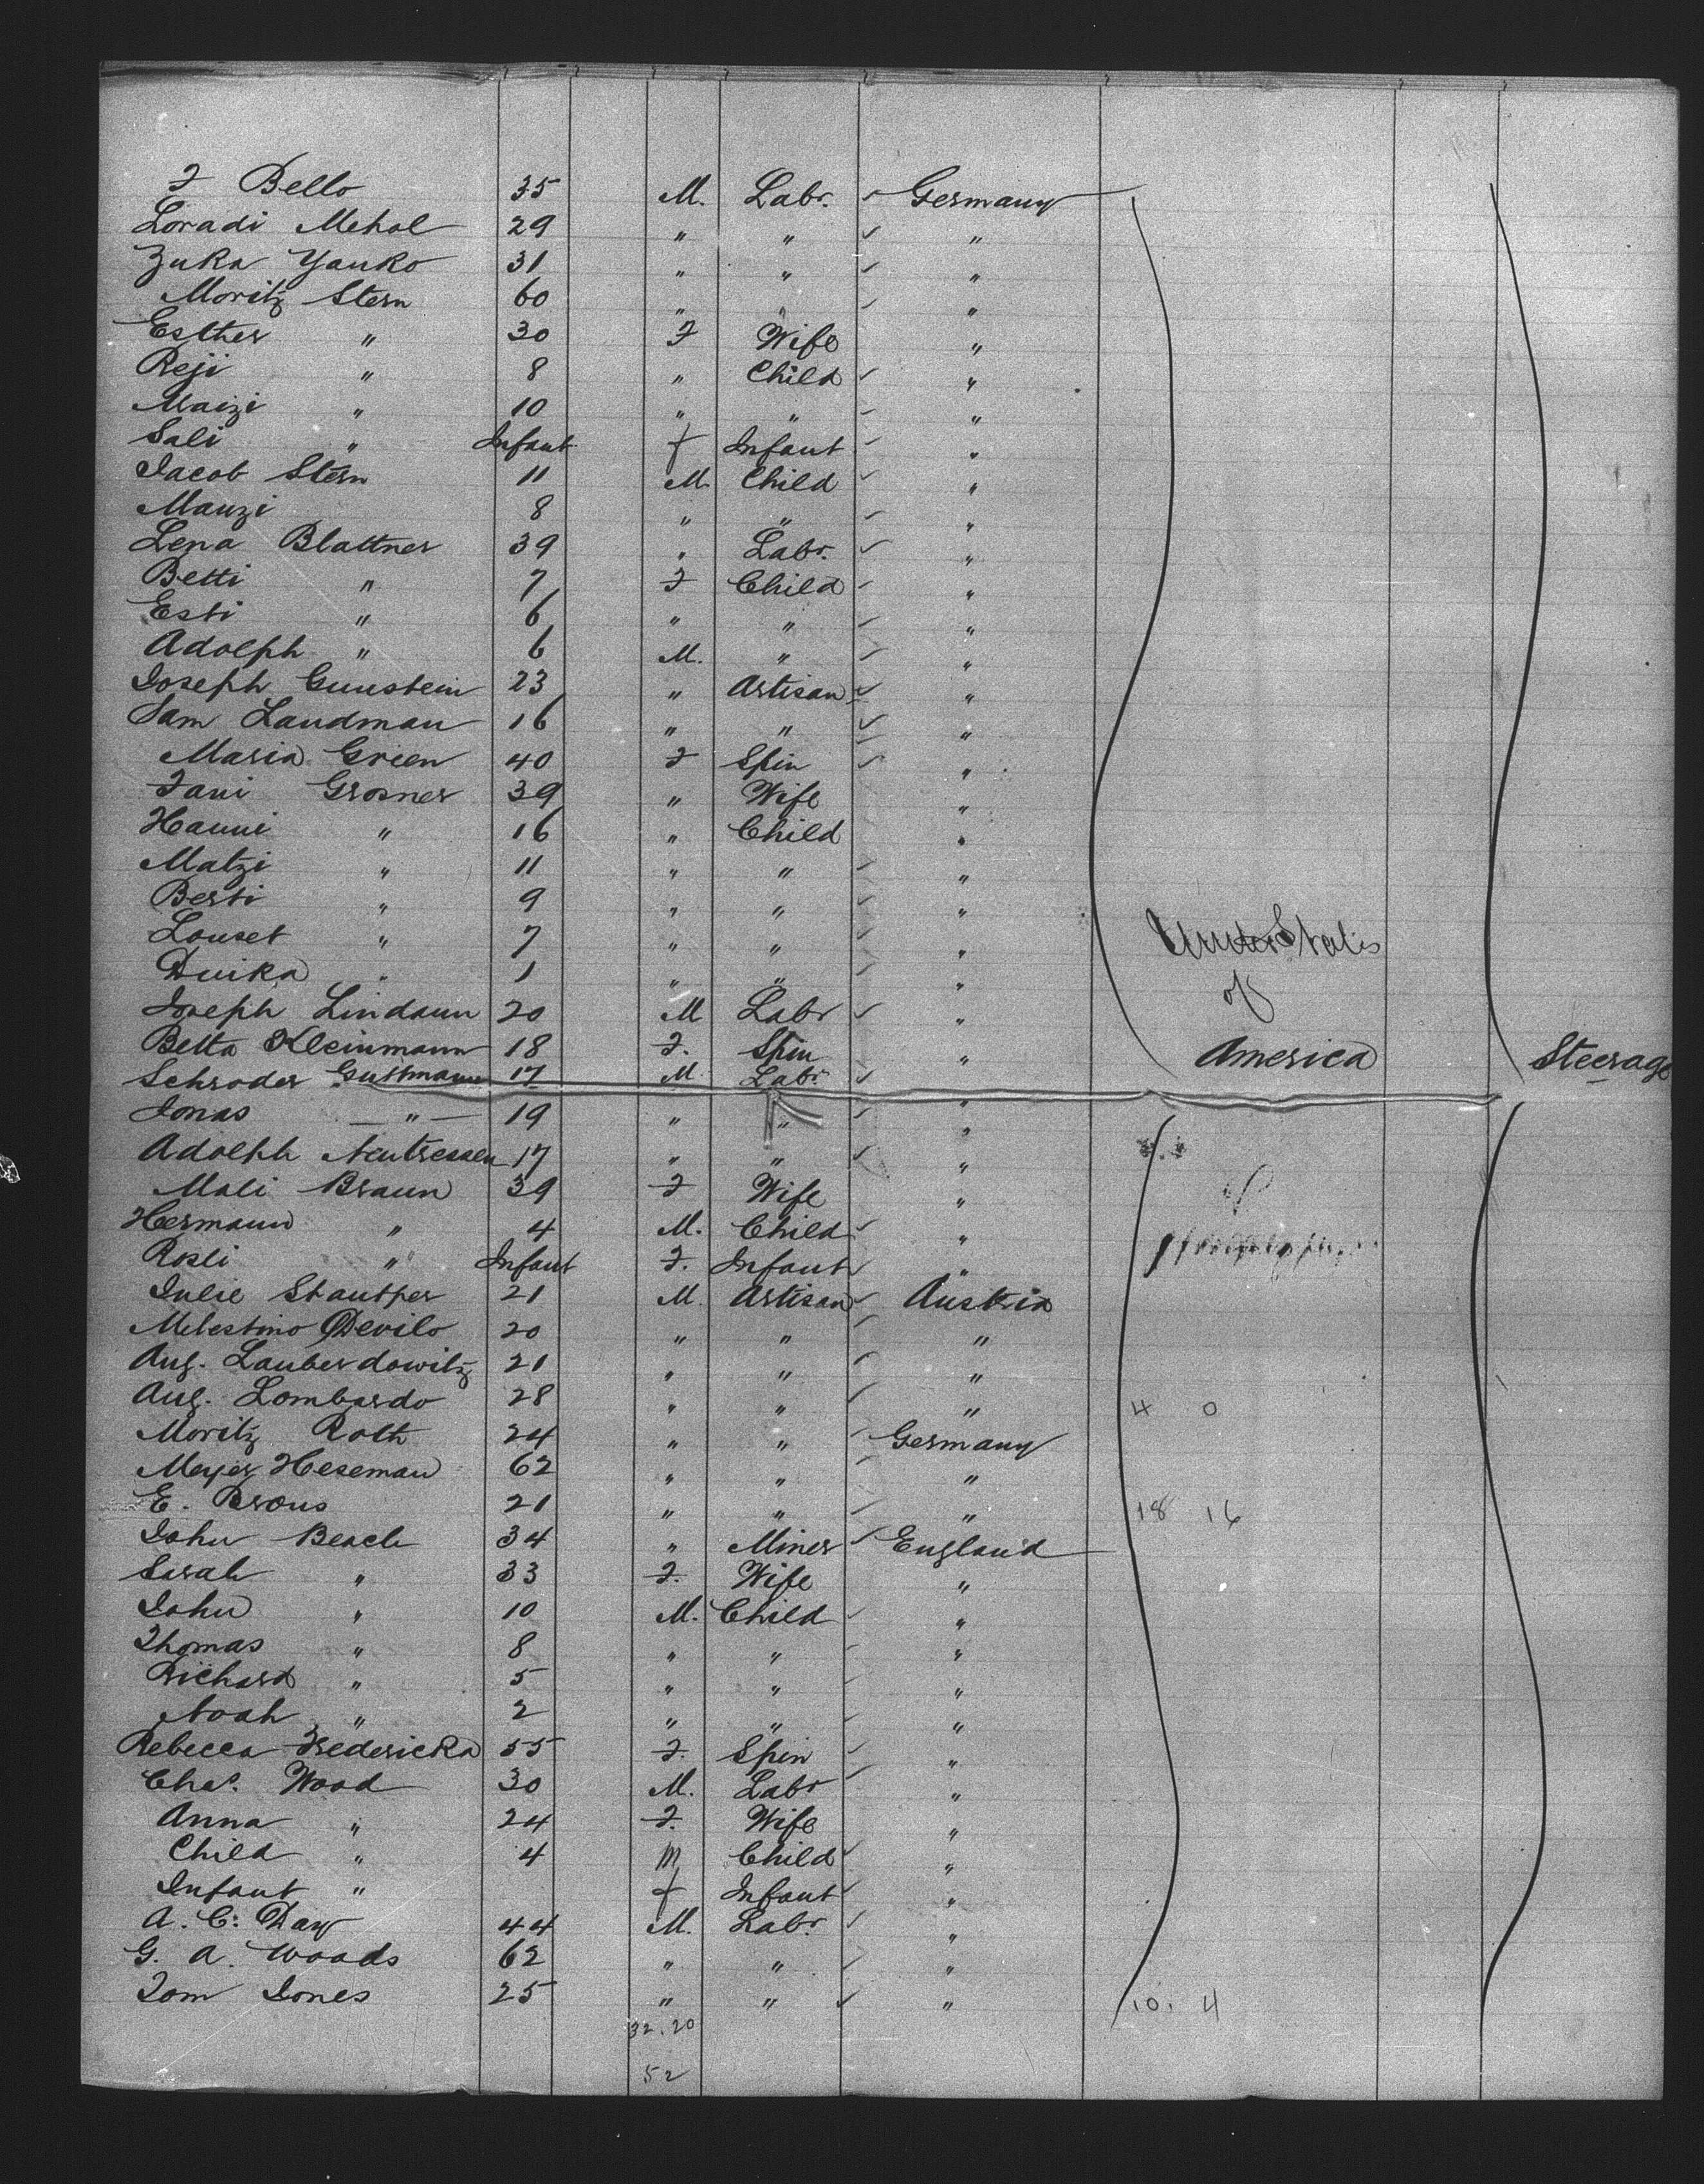 F Bello 35 M. Labr. ✓ Germany
Loradi Mehal 29 " " ✓ "
Zuka Yanko 31 " " ✓ "
Moritz Stern 60 " " ✓ "
Esther " 30 F Wife "
Reji " 8 " Child ✓ "
Maizi " 10 " " ✓ "
Sali " Infant f Infant ✓ "
Jacob Stern 11 M. Child ✓ "
Mauzi 8 " " ✓ "
Lena Blattner 39 " Labr. ✓ "
Betti " 7 F Child ✓ "
Esti " 6 " " ✓ "
Adolph " 6 M. " ✓ "
Joseph Gunstein 23 " Artisan ✓ "
Sam Landman 16 " " ✓ "
Maria Grien 40 F Spin ✓ "
Fani Grosner 39 " Wife "
Hanni " 16 " Child "
Matzi " 11 " " ✓ "
Berti " 9 " " ✓ "
Louset " 7 " " ✓ " United States
Duika " 1 " " ✓ " of
Joseph Lindaun 20 M Labr ✓ "
Betta Kleinmann 18 F. Spin " America Steerage
Schroder Guttmann 17 M. Labr. ✓
Jonas " 19 " " ✓ "
Adolph 17 " " ✓ "
Mali Braun 39 F Wife "
Hermann " 4 M. Child ✓ "
Rosli " Infant F. Infant ✓ "
Julie Stautper 21 M. Artisan ✓ Austria
Melestino Devilo 20 " " ✓ "
Aug. Lauberdowitz 21 " " ✓ "
Aug. Lombardo 28 " " ✓ " 4 0
Moritz Roth 24 " " ✓ Germany
Meyer Heseman 62 " " ✓ "
E. Brous 21 " " ✓ " 18 16
John Beach 34 " Miner ✓ England
Sarah " 33 F. Wife "
John " 10 M. Child ✓ "
Thomas " 8 " " ✓ "
Richard " 5 " " ✓ "
Noah " 2 " " ✓ "
Rebecca Fredericka 55 F. Spin ✓ "
Chas. Wood 30 M. Labr ✓ "
Anna " 24 F. Wife "
Child " 4 M Child ✓ "
Infant " f Infant ✓ "
A. C. Day 44 M. Labr. ✓ "
G. A. Woods 62 " " ✓ "
Tom Jones 25 " " ✓ " 10. 4
32. 20
52